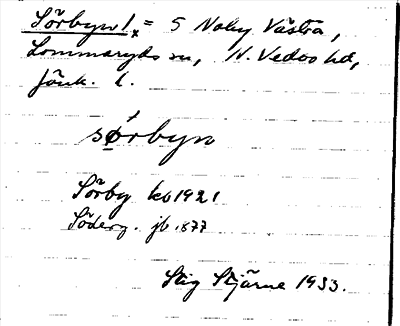 Sörbyn 1x = S Noby Västra,
Lommaryds sn, N. Vedbo hd,
Jönk. l.
sørbyn
Sörby kb 1921
Söderg. jb 1877
Stig Stjärne 1933.